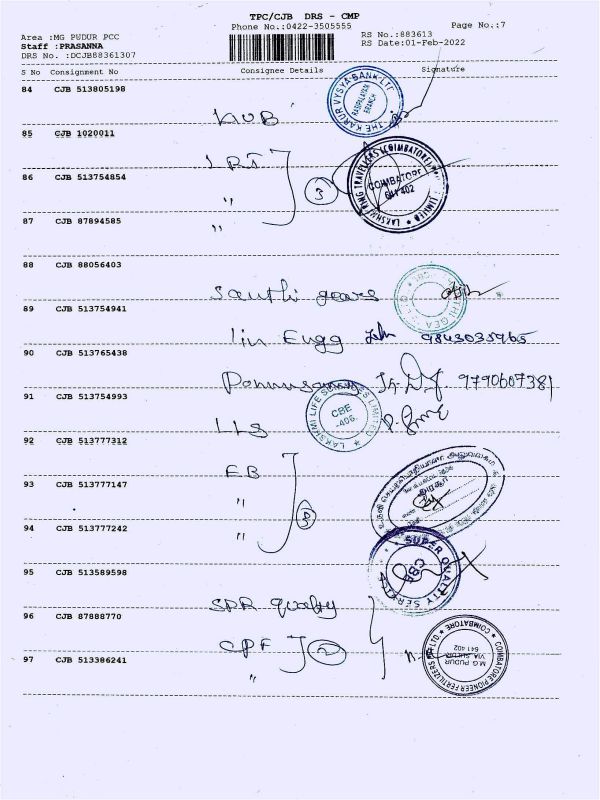 TPC/CJB DRS - CMP
Phone No.:0422-3505555
Page No.:7
Area :MG PUDUR PCC
Staff :PRASANNA
DRS No. :DCJB88361307
RS No.:883613
RS Date:01-Feb-2022
S No Consignment No Consignee Details Signature
84 CJB 513805198
KVB
THE KARUR VYSYA BANK LTD
BRANCH
85 CJB 1020011
LRT
3
COIMBATORE
641 402
LIMITED
86 CJB 513754854
"
87 CJB 87894585
"
88 CJB 88056403
Santhi gears
89 CJB 513754941
Engg 9843035965
90 CJB 513765438
Ponnusamy 9790607381
91 CJB 513754993
LLS
LAKSHMI LIFE SCIENCES LIMITED
CBE
-406.
92 CJB 513777312
EB
93 CJB 513777147
"
3
94 CJB 513777242
"
SUPER QUALITY SERVICES
CBE
95 CJB 513589598
SPR quality
96 CJB 87888770
CPF
2
97 CJB 513386241
"
COIMBATORE PIONEER FERTILIZERS LTD
M.G PUDUR
VIA SULUR
641 402
COIMBATORE